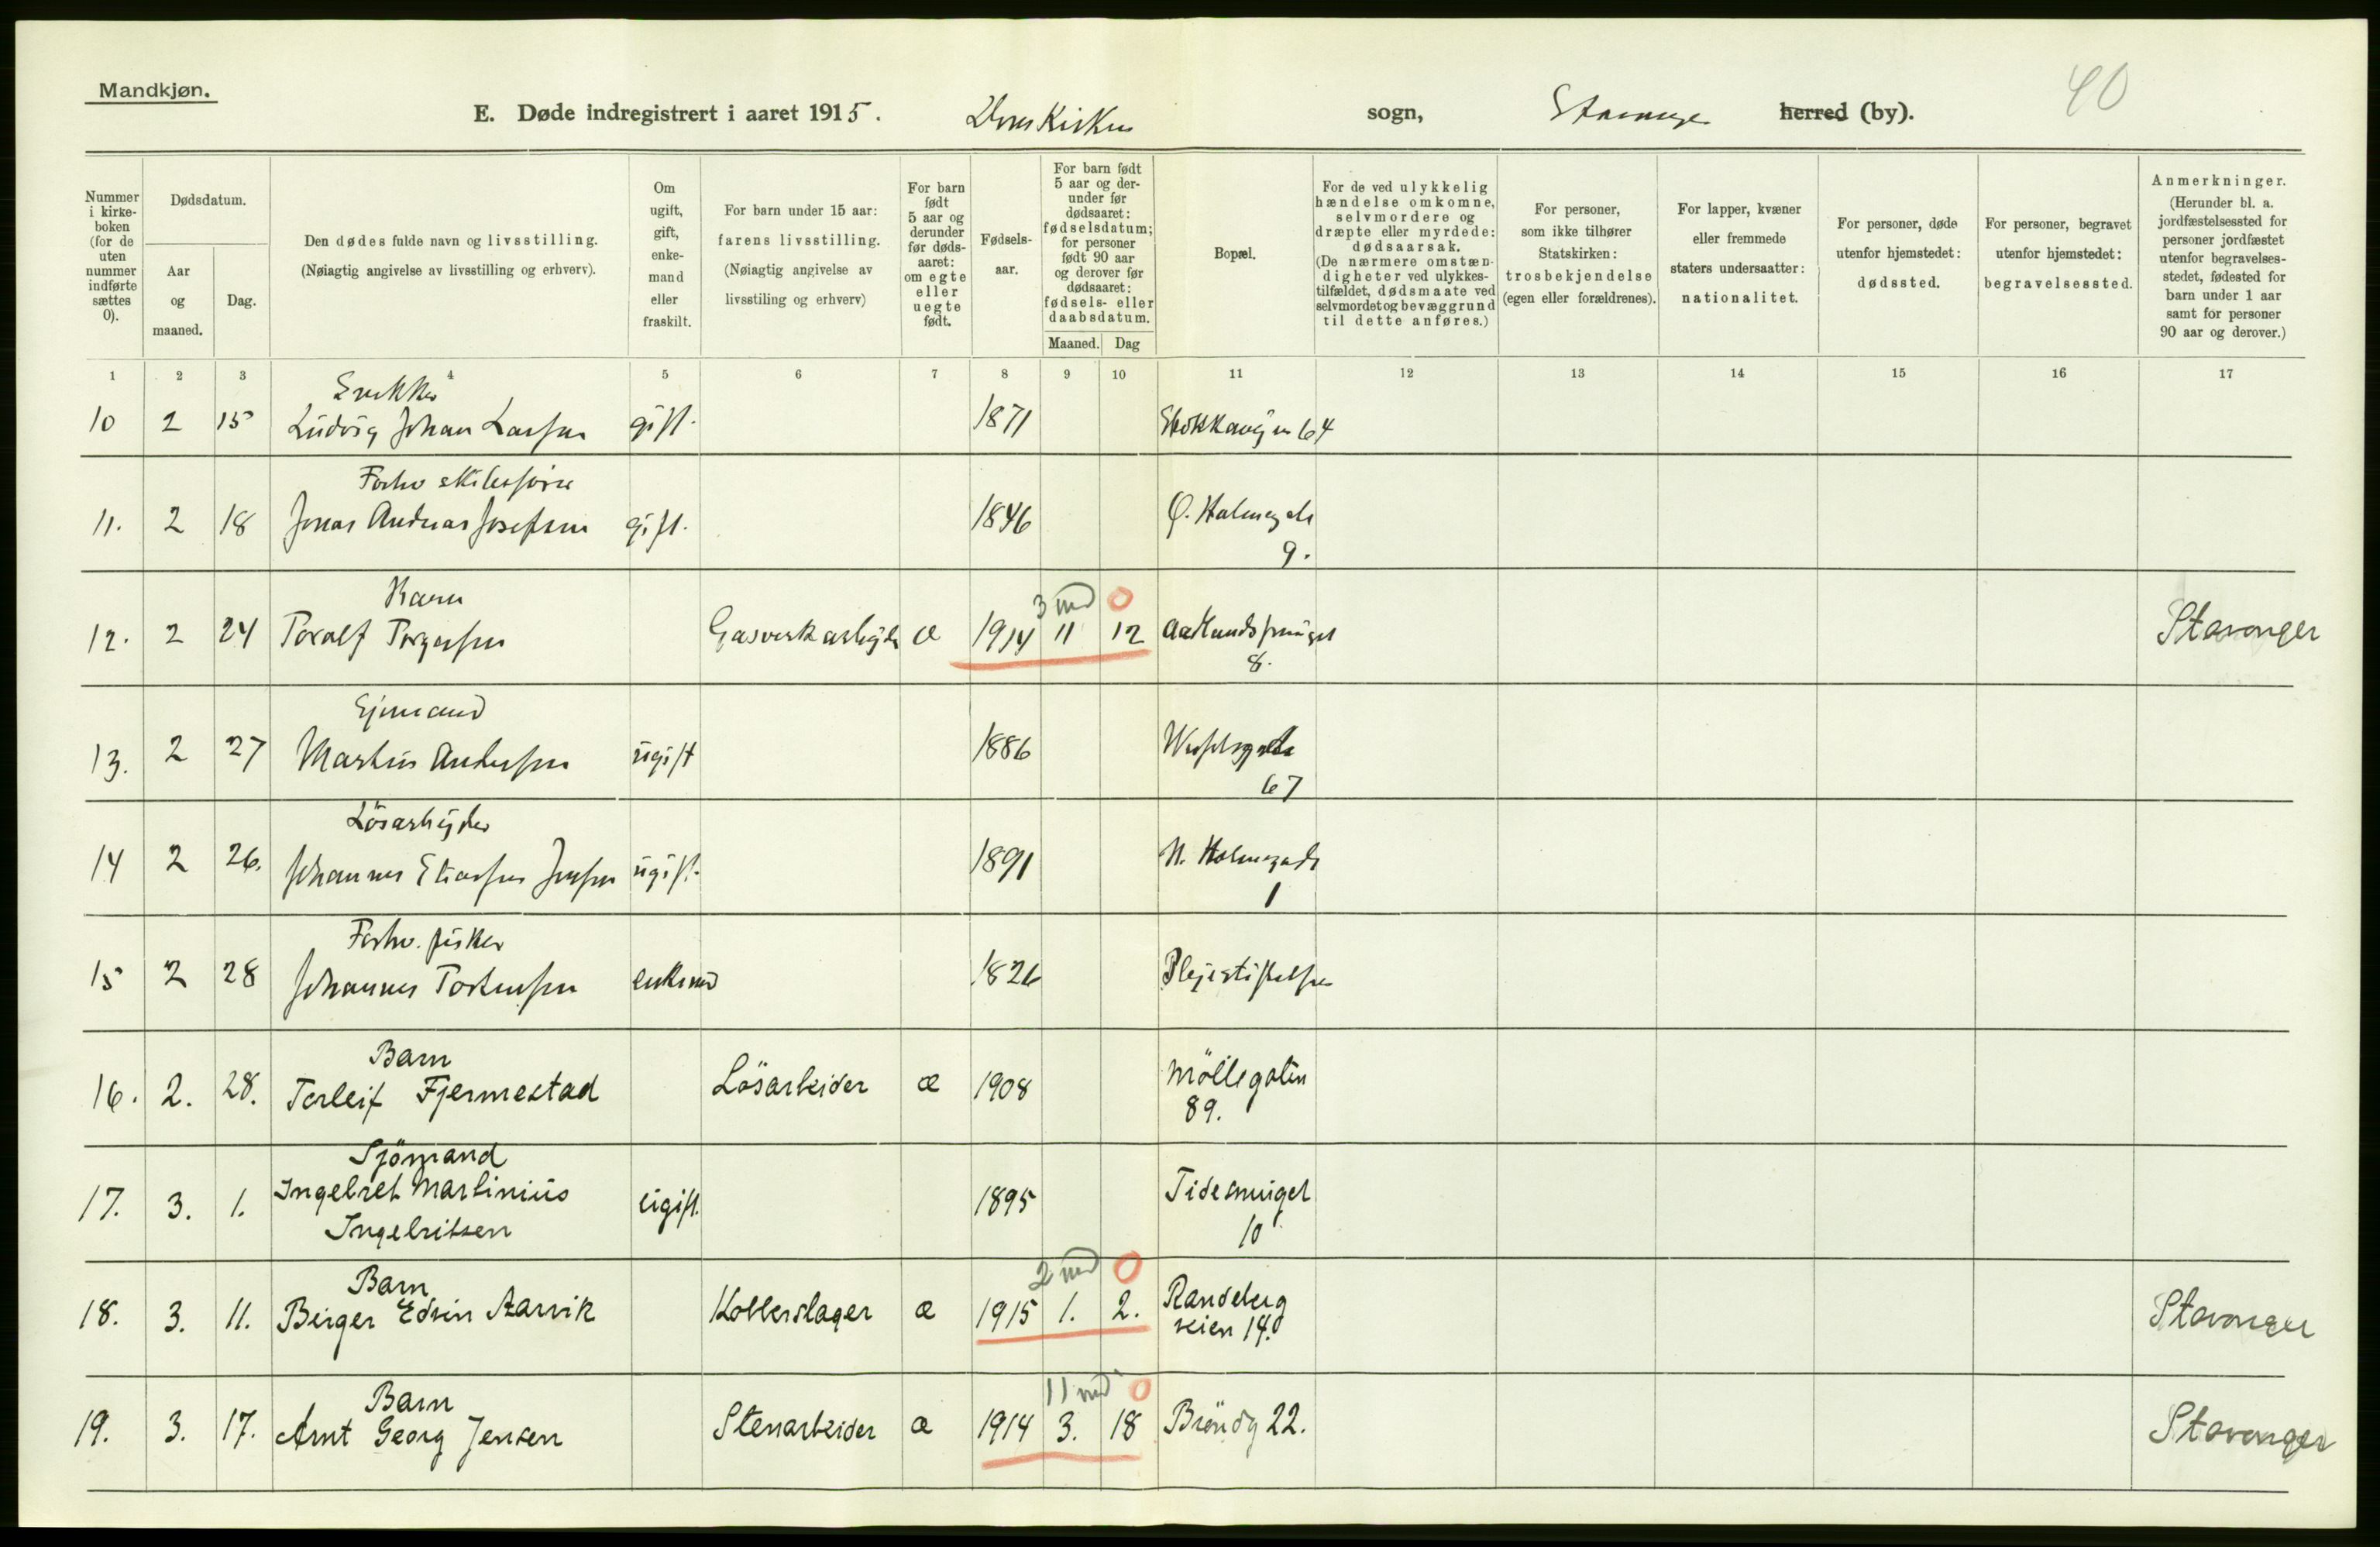 Mandkjøn.
40
E. Døde indregistrert i aaret 1915. Domkirken sogn, Stavanger herred (by).
Nummer i kirke- boken (for de uten nummer indførte sættes 0).
Dødsdatum.
Aar og maaned.
Dag.
Den dødes fulde navn og livsstilling.
(Nøiagtig angivelse av livsstilling og erhverv).
Om ugift, gift, enke- mand eller fraskilt.
For barn under 15 aar: farens livsstilling.
(Nøiagtig angivelse av livsstiling og erhverv)
For barn født 5 aar og derunder før døds- aaret: om egte eller uegte født.
Fødsels- aar.
For barn født 5 aar og der- under før dødsaaret: fødselsdatum; for personer født 90 aar og derover før dødsaaret: fødsels- eller daabsdatum.
Maaned. Dag
Bopæl.
For de ved ulykkelig hændelse omkomne, selvmordere og dræpte eller myrdede: dødsaarsak.
(De nærmere omstæn- digheter ved ulykkes- tilfældet, dødsmaate ved selvmordet og bevæggrund til dette anføres.)
For personer, som ikke tilhører Statskirken: trosbekjendelse (egen eller forældrenes).
For lapper, kvæner eller fremmede staters undersaatter: nationalitet.
For personer, døde utenfor hjemstedet: dødssted.
For personer, begravet utenfor hjemstedet: begravelsessted.
Anmerkninger.
(Herunder bl. a. jordfæstelsessted for personer jordfæstet utenfor begravelses- stedet, fødested for barn under 1 aar samt for personer 90 aar og derover.)
1 2 3 4 5 6 7 8 9 10 11 12 13 14 15 16 17
Snekker
10 2 15 Ludvig Johan Larsen gift. 1871 64
Forhv skibsfører
11. 2 18 Jonas Andreas Josefsen gift. 1846 Ø. Holmegade
9.
Barn 3 md 0
12. 2 24 Toralf Torgersen Gasverkarbeider æ 1914 11 12 Stavanger
8.
Sjømand
13. 2 27 Martin Andersen ugift 1886 Wesselsgade
67
Lösarbeider
14 2 26. Johannes Eliassen Jensen ugift. 1891 N. Holmegade
1
Forhv. fisker
15 2 28 Johannes Torkelsen enkemd 1826 Plejestiftelsen
Barn
16. 2. 28. Torleif Fjermestad Lösarbeider æ 1908 Möllegaten
89.
Sjömand
17. 3. 1. Ingebret Martinius ugift. 1895 Tidesmuget
Ingebritsen 10
Barn 2 md 0
18. 3. 11. Birger Edvin Aarvik Kobberslager æ 1915 1. 2. Randeberg Stavanger
veien 14.
Barn 11 md 0
19. 3. 17. Arnt Georg Jensen Stenarbeider æ 1914 3. 18 Bröndg 22. Stavanger